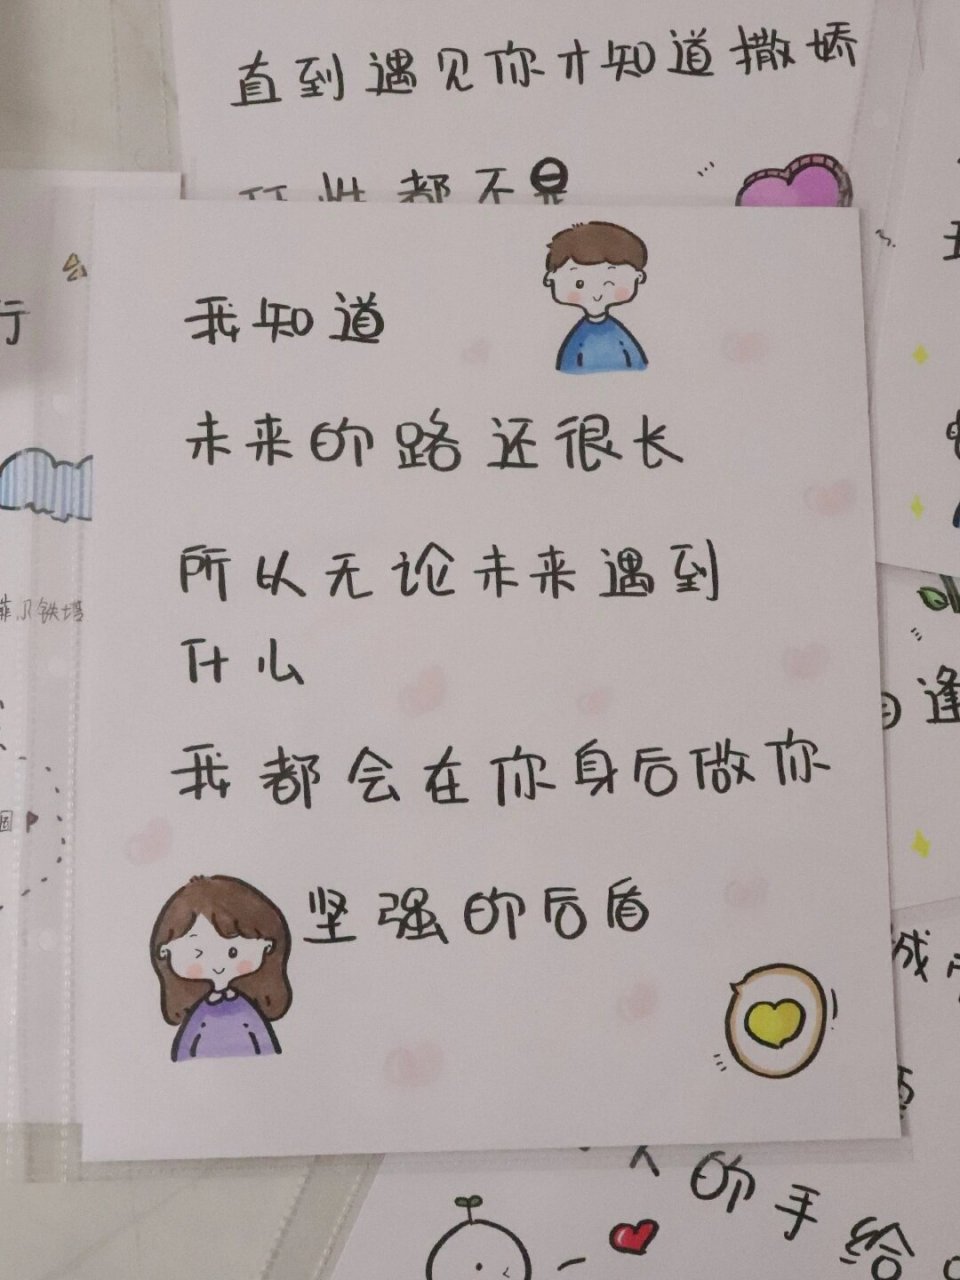 直到遇见你才知道撒娇
任性都不是
行
我知道
未来的路还很长
所以无论未来遇到
什么
我都会在你身后做你
坚强的后盾
铁塔
逢
成
的手给